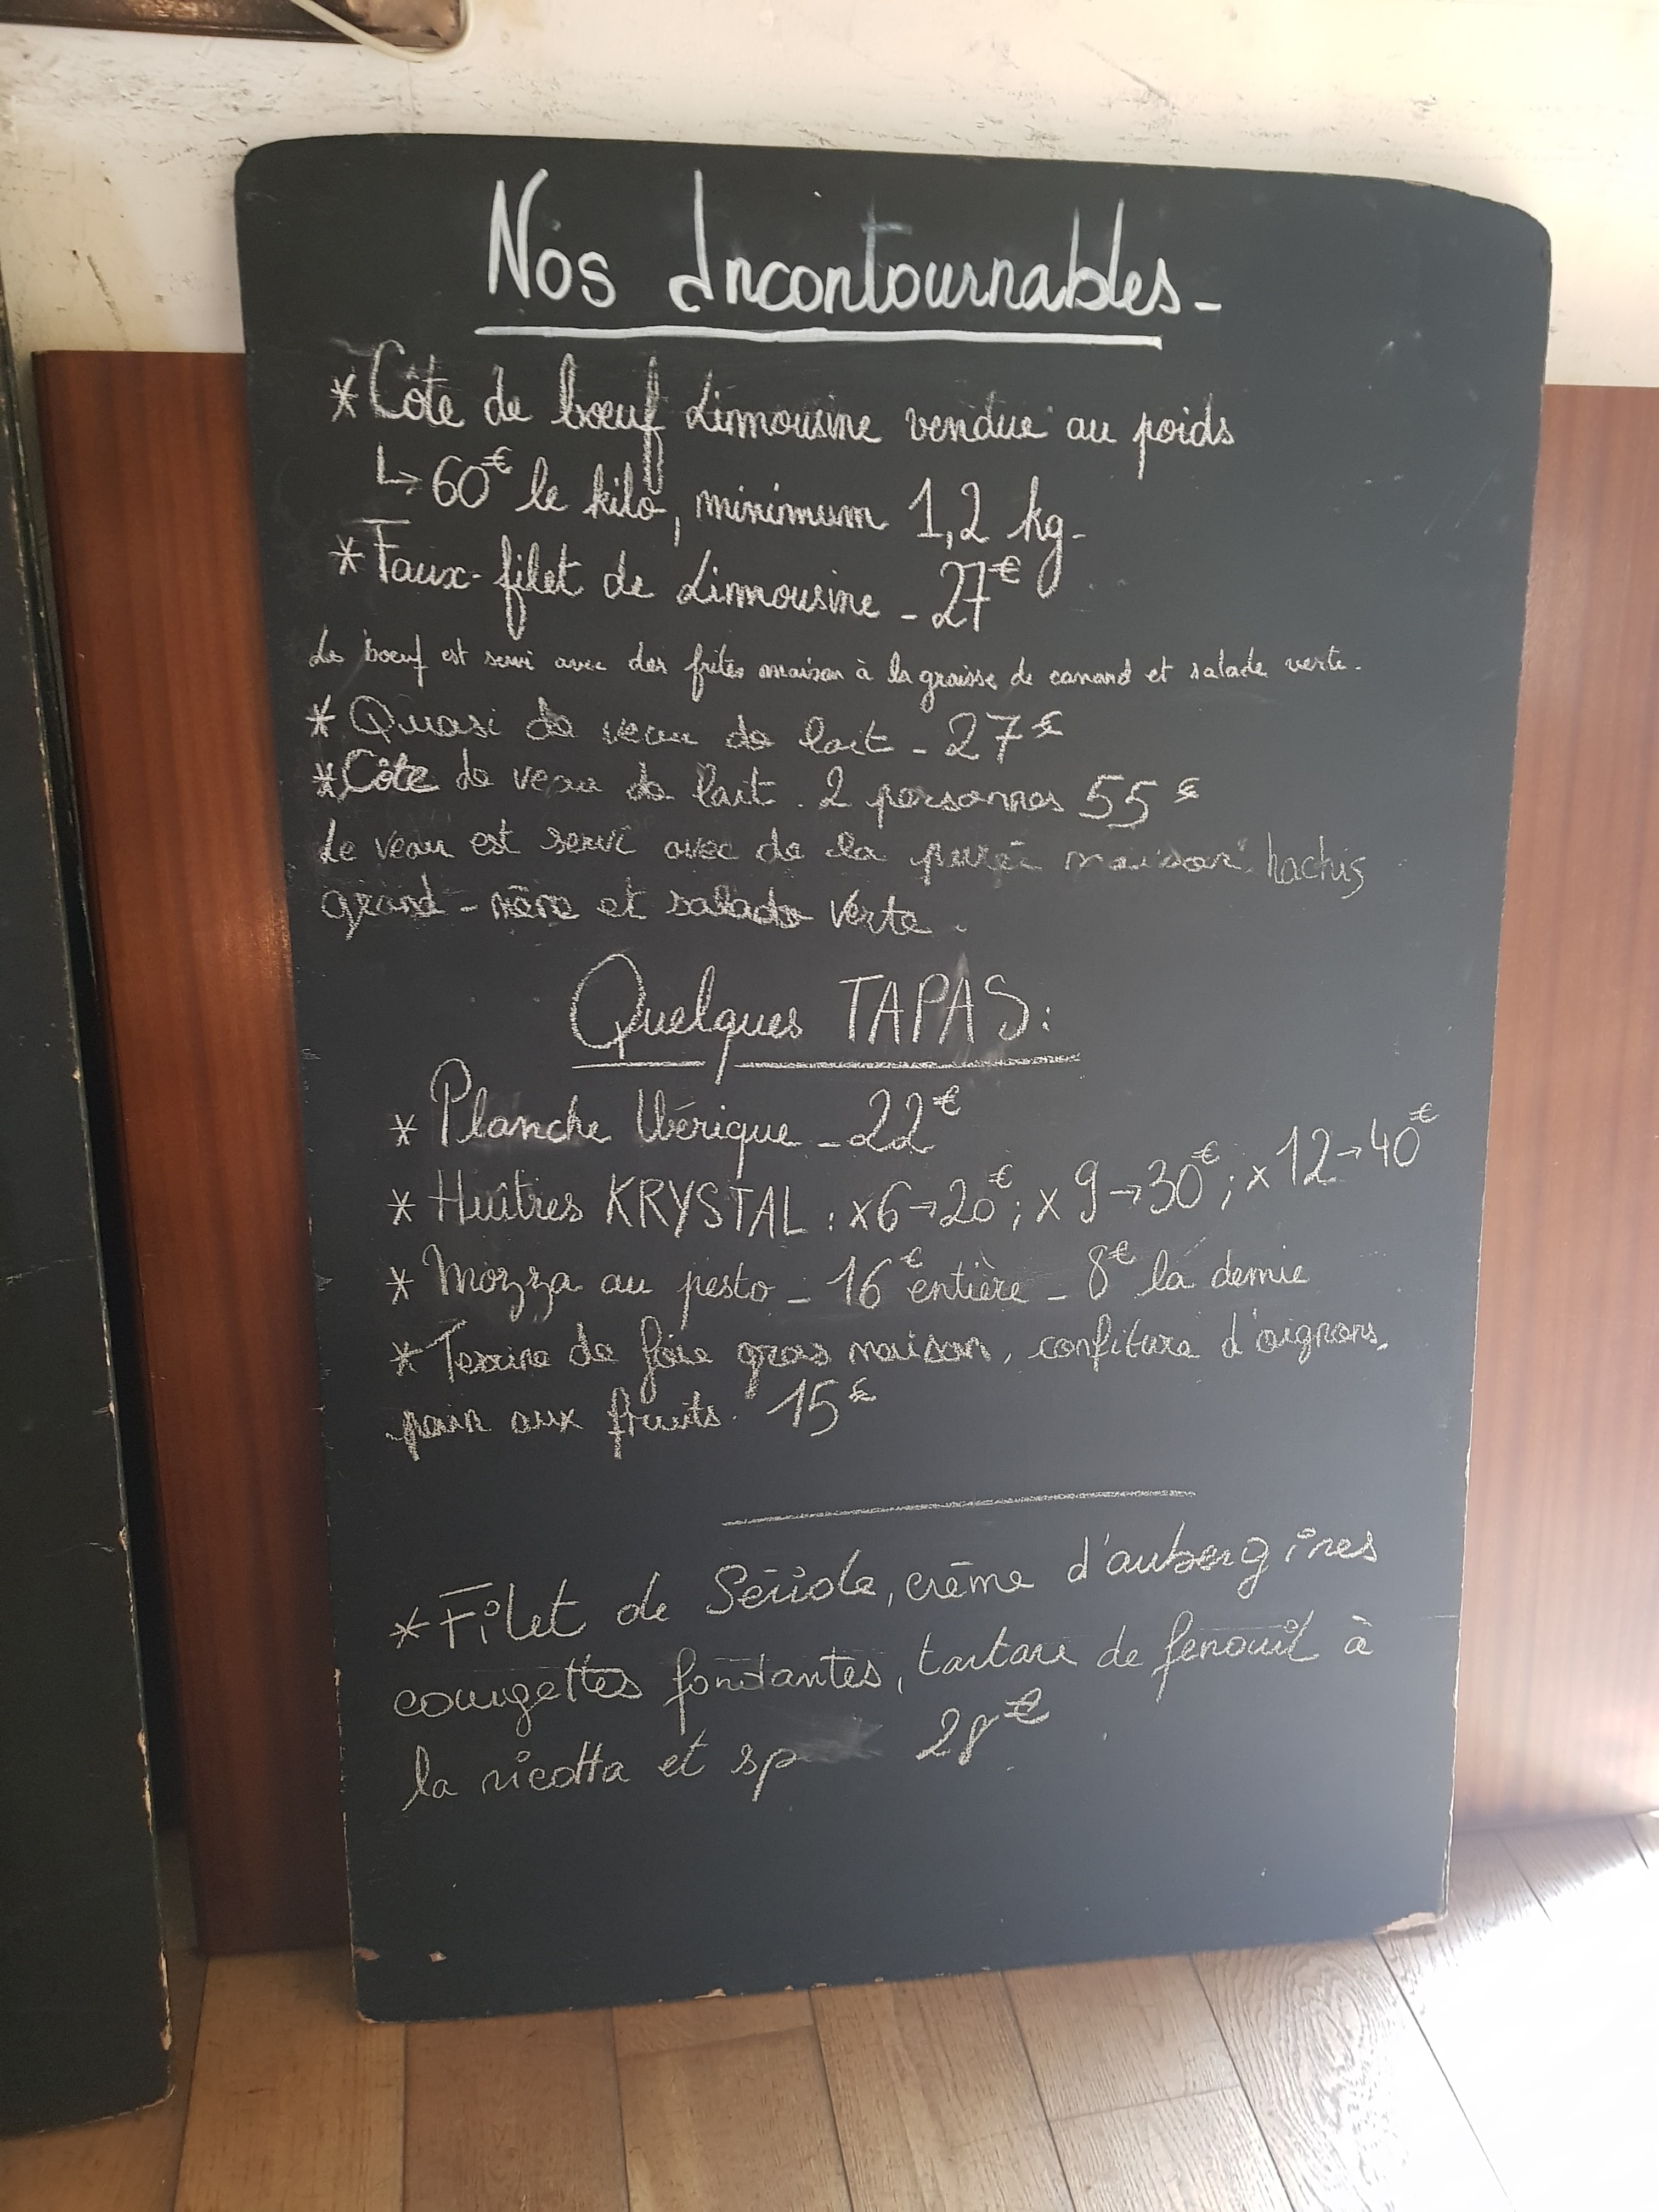 Nos Incontournables-
* Côte de bœuf Limousine vendue au poids
↳ 60€ le kilo, minimum 1,2 kg-
* Faux-filet de Limousine - 27€
Le bœuf est servi avec des frites maison à la graisse de canard et salade verte.
* Quasi de veau de lait - 27€
* Côte de veau de lait. 2 personnes 55€
Le veau est servi avec de la purée maison. hachis
grand-mère et salade verte.
Quelques TAPAS:
* Planche Ibérique - 22€
* Huîtres KRYSTAL : x6→20€; x9→30€; x12→40€
* Mozza au pesto - 16€ entière - 8€ la demie
* Terrine de foie gras maison, confiture d'oignons,
pain aux fruits. 15€
* Filet de Sériole, crème d'aubergines
courgettes fondantes, tartare de fenouil à
la ricotta et 28€